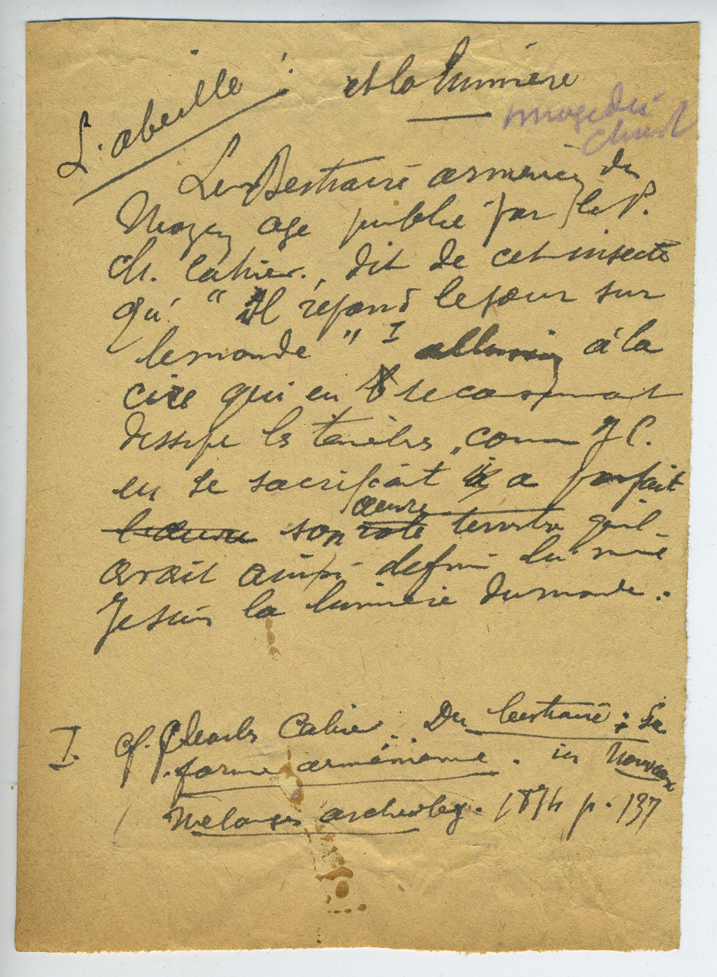 L'abeille : et la lumière
image du
Christ
Le Bestiaire arménien du
Moyen age publié par le P.
Ch. Cahier, dit de cet insecte
qu' "Il répand le jour sur
le monde" I allusion à la
cire qui en se consumant
dissipe les tenèbres, comme J C.
en se sacrifiant a parfait
l'œuvre son œuvre terrestre qu'il
avait ainsi défini lui même
Je suis la lumière du monde.
I. cf. Charles Cahier. Du bestiaire : Sa
forme arménienne. in Nouveaux
Mélanges archeolog. 1874 p. 137